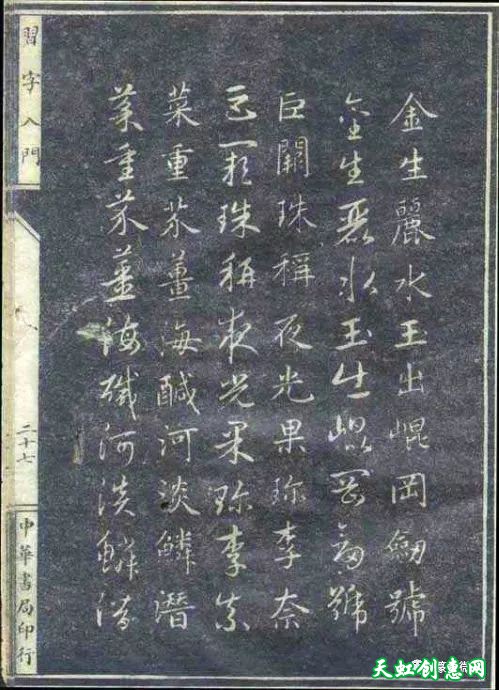 金生麗水玉出崐岡劒號
金生麗水玉出崐岡劒號
巨闕珠稱夜光果珍李奈
巨闕珠稱夜光果珍李奈
菜重芥薑海醎河淡鱗潛
菜重芥薑海醎河淡鱗潛
習字入門
二十七
中華書局印行
天虹创意网